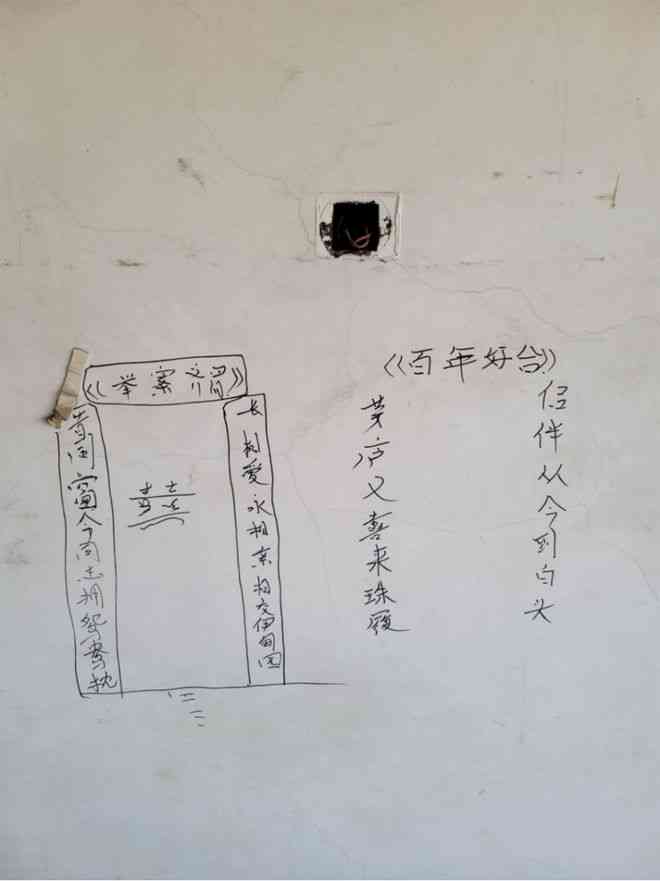 《举案齐眉》
昔同窗今同志相鸳鸯枕
长相爱永相亲相交
《百年好合》
侣伴从今到白头
茅庐又喜来珠履